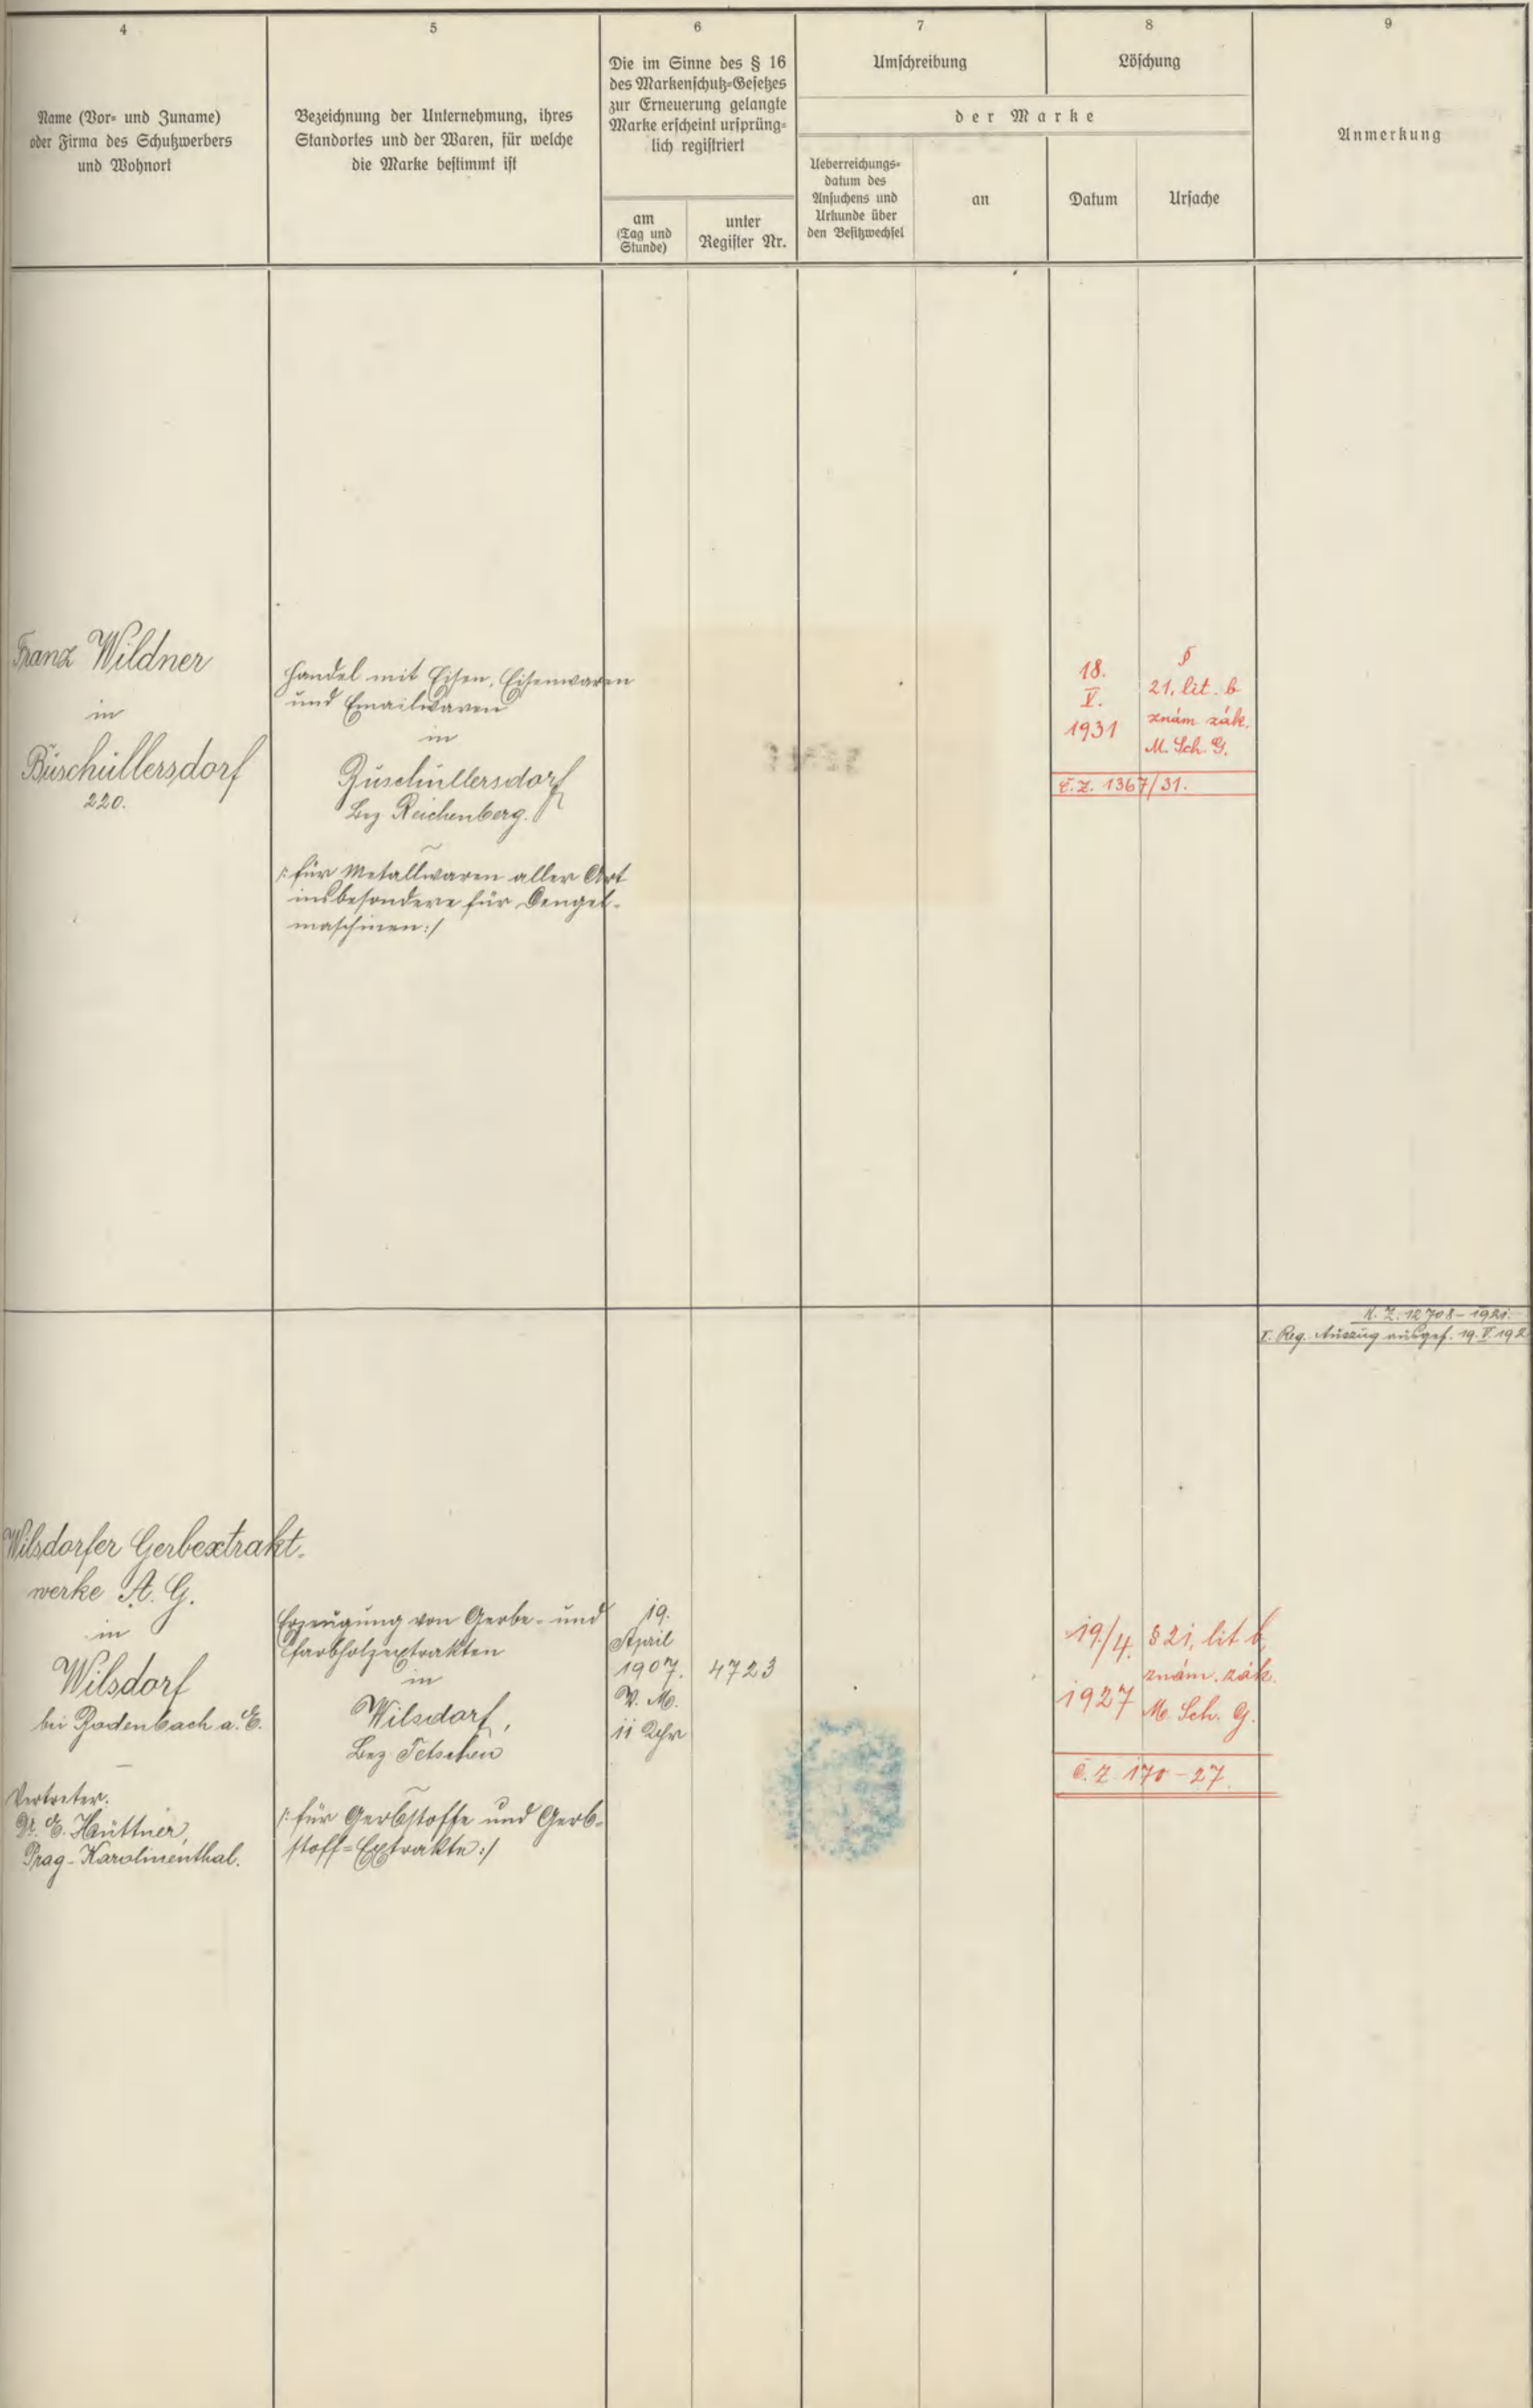 4
Name (Vor- und Zuname)
oder Firma des Schutzwerbers
und Wohnort
5
Bezeichnung der Unternehmung, ihres
Standortes und der Waren, für welche
die Marke bestimmt ist
6
Die im Sinne des § 16
des Markenschutz-Gesetzes
zur Erneuerung gelangte
Marke erscheint ursprüng-
lich registriert
am
(Tag und
Stunde)
unter
Register Nr.
7
Umschreibung
8
Löschung
der Marke
Ueberreichungs-
datum des
Ansuchens und
Urkunde über
den Besitzwechsel
an
Datum
Ursache
9
Anmerkung
Franz Wildner
in
Buschullersdorf
220.
Handel mit Eisen, Eisenwaren
und Emailwaren
in
Buschullersdorf
Bez Reichenberg.
/: für Metallwaren aller Art
insbesondere für Dengel-
maschinen :/
18.
V.
1931
§
21, lit. b
znám zák.
M. Sch. G.
č.z. 1367/31.
K. Z. 12708-1921.
I. Reg. Auszug ausgef. 19.V.192
Wilsdorfer Gerbextrakt-
werke A. G.
in
Wilsdorf
bei Bodenbach a. E.
Vertreter:
Dr. E. Hüttner,
Prag-Karolinenthal.
Erzeugung von Gerbe- und
Farbholzextrakten
in
Wilsdorf,
Bez Tetschen
/: für Gerbstoffe und Gerb-
stoff-Extrakte :/
19.
April
1907.
V. M.
11 Uhr
4723
19./4.
1927
§ 21, lit b,
znám. zák.
M. Sch. G.
č.z. 170-27.